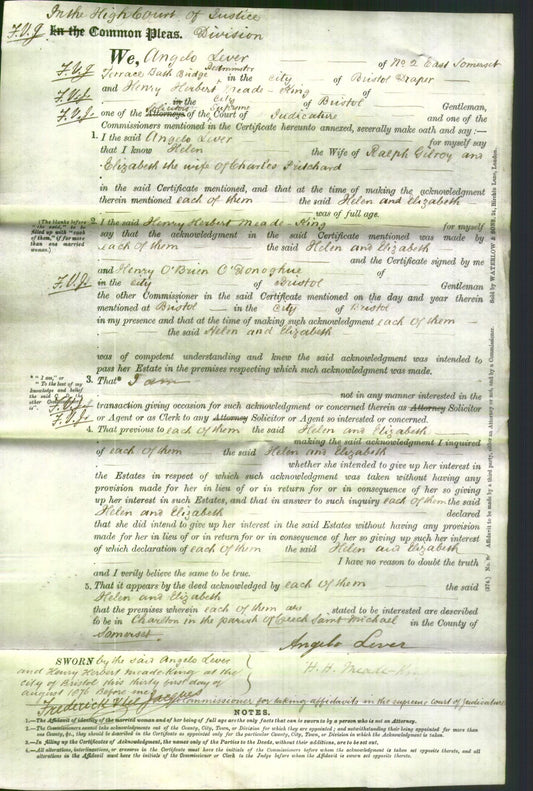 In the High Court of Justice
F.V.J. In the Common Pleas. Division
We, Angelo Lever of No 2 East Somerset
F.V.J. Terrace Bath Bridge in the city of Bristol Draper
and Henry Herbert Meade-King of
F.V.J. in the City of Bristol Gentleman,
F.V.J. one of the Solicitors Attorneys of the Supreme Court of Judicature and one of the
Commissioners mentioned in the Certificate hereunto annexed, severally make oath and say:—
1. I the said Angelo Lever for myself say
that I know Helen the Wife of Ralph Gilroy and
Elizabeth the wife of Charles Pritchard
in the said Certificate mentioned, and that at the time of making the acknowledgment
therein mentioned each of them the said Helen and Elizabeth
was of full age.
(The blanks before "the said," to be filled up with "each of them," if for more than one married woman.)
2. I the said Henry Herbert Meade-King for myself
say that the acknowledgment in the said Certificate mentioned was made by
each of them the said Helen and Elizabeth
and the Certificate signed by me
and Henry O'Brien O'Donoghue of
F.V.J. in the city of Bristol Gentleman
the other Commissioner in the said Certificate mentioned on the day and year therein
mentioned at Bristol in the City of Bristol
in my presence and that at the time of making such acknowledgment each of them
the said Helen and Elizabeth
was of competent understanding and knew the said acknowledgment was intended to
pass her Estate in the premises respecting which such acknowledgment was made.
* "I am," or "To the best of my knowledge and belief the said
3. That * I am
not in any manner interested in the
F.V.J. transaction giving occasion for such acknowledgment or concerned therein as Attorney Solicitor
F.V.J. or Agent or as Clerk to any Attorney Solicitor or Agent so interested or concerned.
4. That previous to each of them the said Helen and Elizabeth
making the said acknowledgment I inquired
of each of them the said Helen and Elizabeth
whether she intended to give up her interest in
the Estates in respect of which such acknowledgment was taken without having any
provision made for her in lieu of or in return for or in consequence of her so giving
up her interest in such Estates, and that in answer to such inquiry each of them the said
Helen and Elizabeth declared
that she did intend to give up her interest in the said Estates without having any provision
made for her in lieu of or in return for or in consequence of her so giving up such her interest
of which declaration of each of them the said Helen and Elizabeth
I have no reason to doubt the truth
and I verily believe the same to be true.
5. That it appears by the deed acknowledged by each of them the said
Helen and Elizabeth
that the premises wherein each of them are stated to be interested are described
to be in Charlton in the parish of Creech Saint Michael in the County of
Somerset.
Angelo Lever
H. H. Meade-King
SWORN by the said Angelo Lever
and Henry Herbert Meade-King at the
city of Bristol this thirty first day of
August 1876 Before me,
Frederick Jacques
a Commissioner for taking affidavits in the supreme Court of Judicature
NOTES.
1.—The Affidavit of identity of the married woman and of her being of full age are the only facts that can be sworn to by a person who is not an Attorney.
2.—The Commissioners cannot take acknowledgments out of the County, City, Town, or Division for which they are appointed; and notwithstanding their being appointed for more than
one County, &c., they should be described in the Certificate as appointed only for the particular County, City, Town, or Division in which the Acknowledgment is taken.
3.—In filling up the Certificates of Acknowledgment, the names only of the Parties to the Deeds, without their additions, are to be set out.
4.—All alterations, interlineations, or erasures in the Certificate must have the initials of the Commissioners before whom the acknowledgment is taken set opposite thereto, and all
alterations in the Affidavit must have the initials of the Commissioner or Clerk to the Judge before whom the Affidavit is sworn set opposite thereto.
Sold by WATERLOW & SONS, Birchin Lane, London.